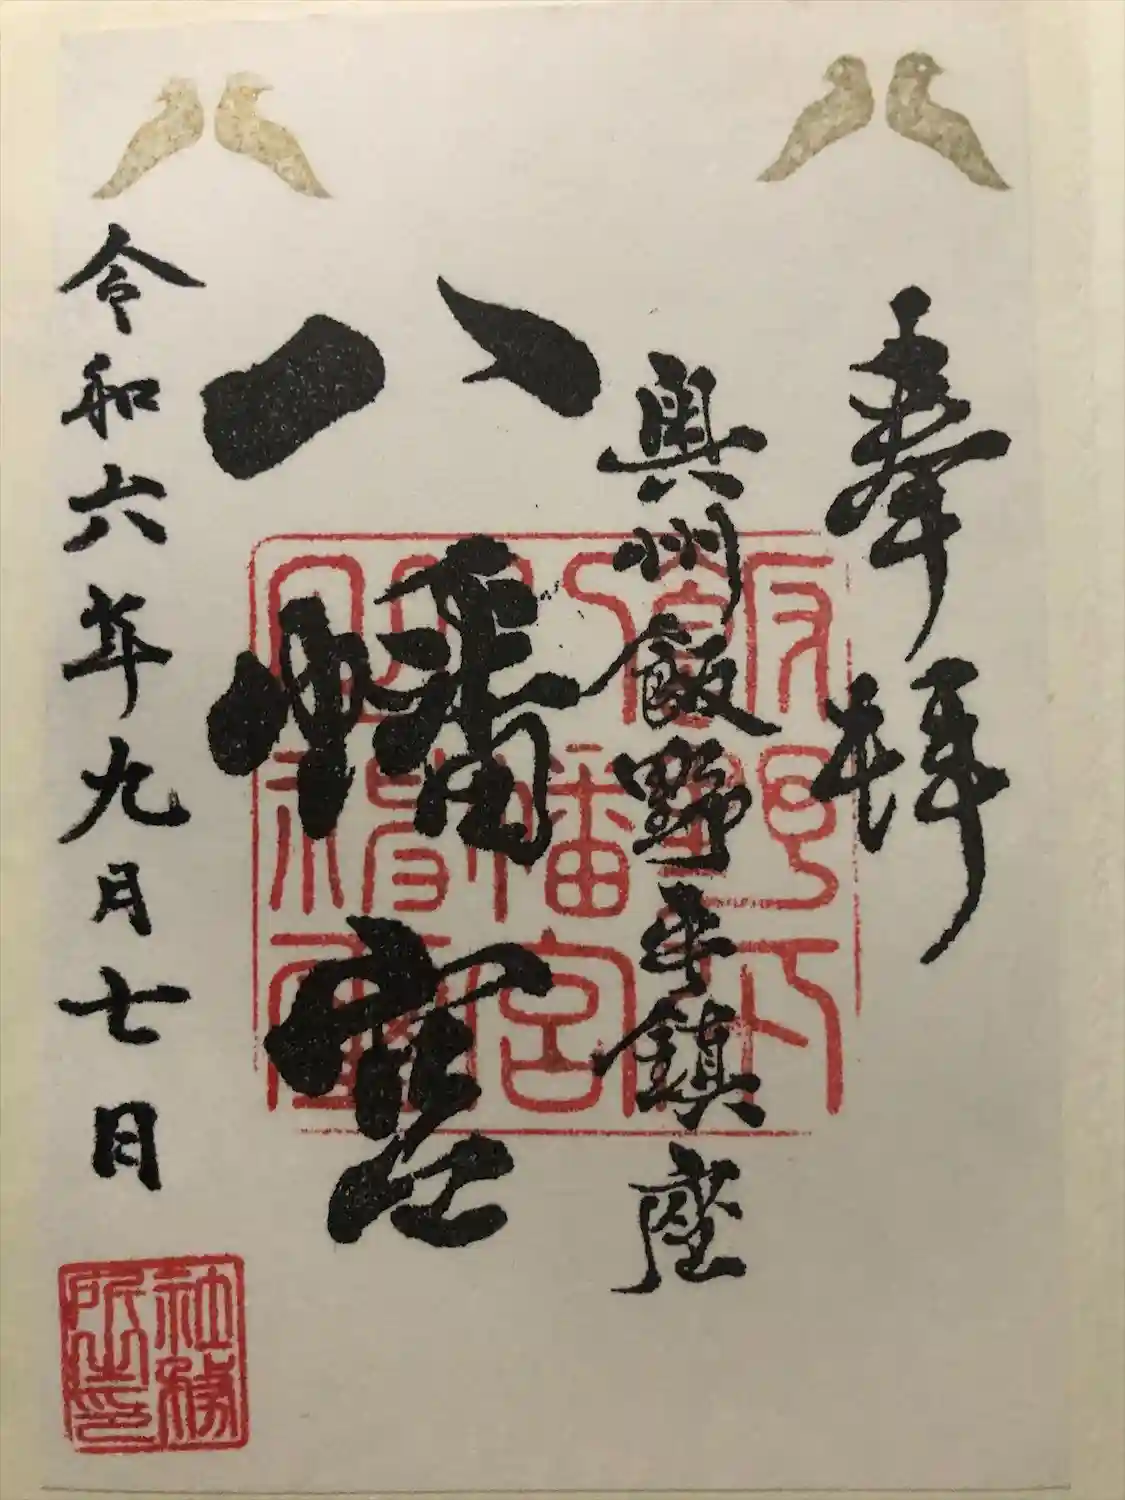 奉拝
奥州飯野平鎮座
八幡宮
令和六年九月七日
社務
所之印